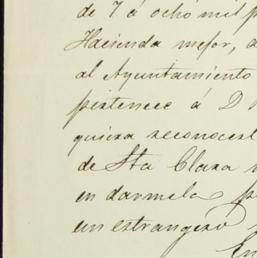 de 7 á ocho mil p
Hacienda mejor, a
al Ayuntamiento
pertenece á D
quiera reconocer
de Sta Clara
en darmela p
un estrangero
En